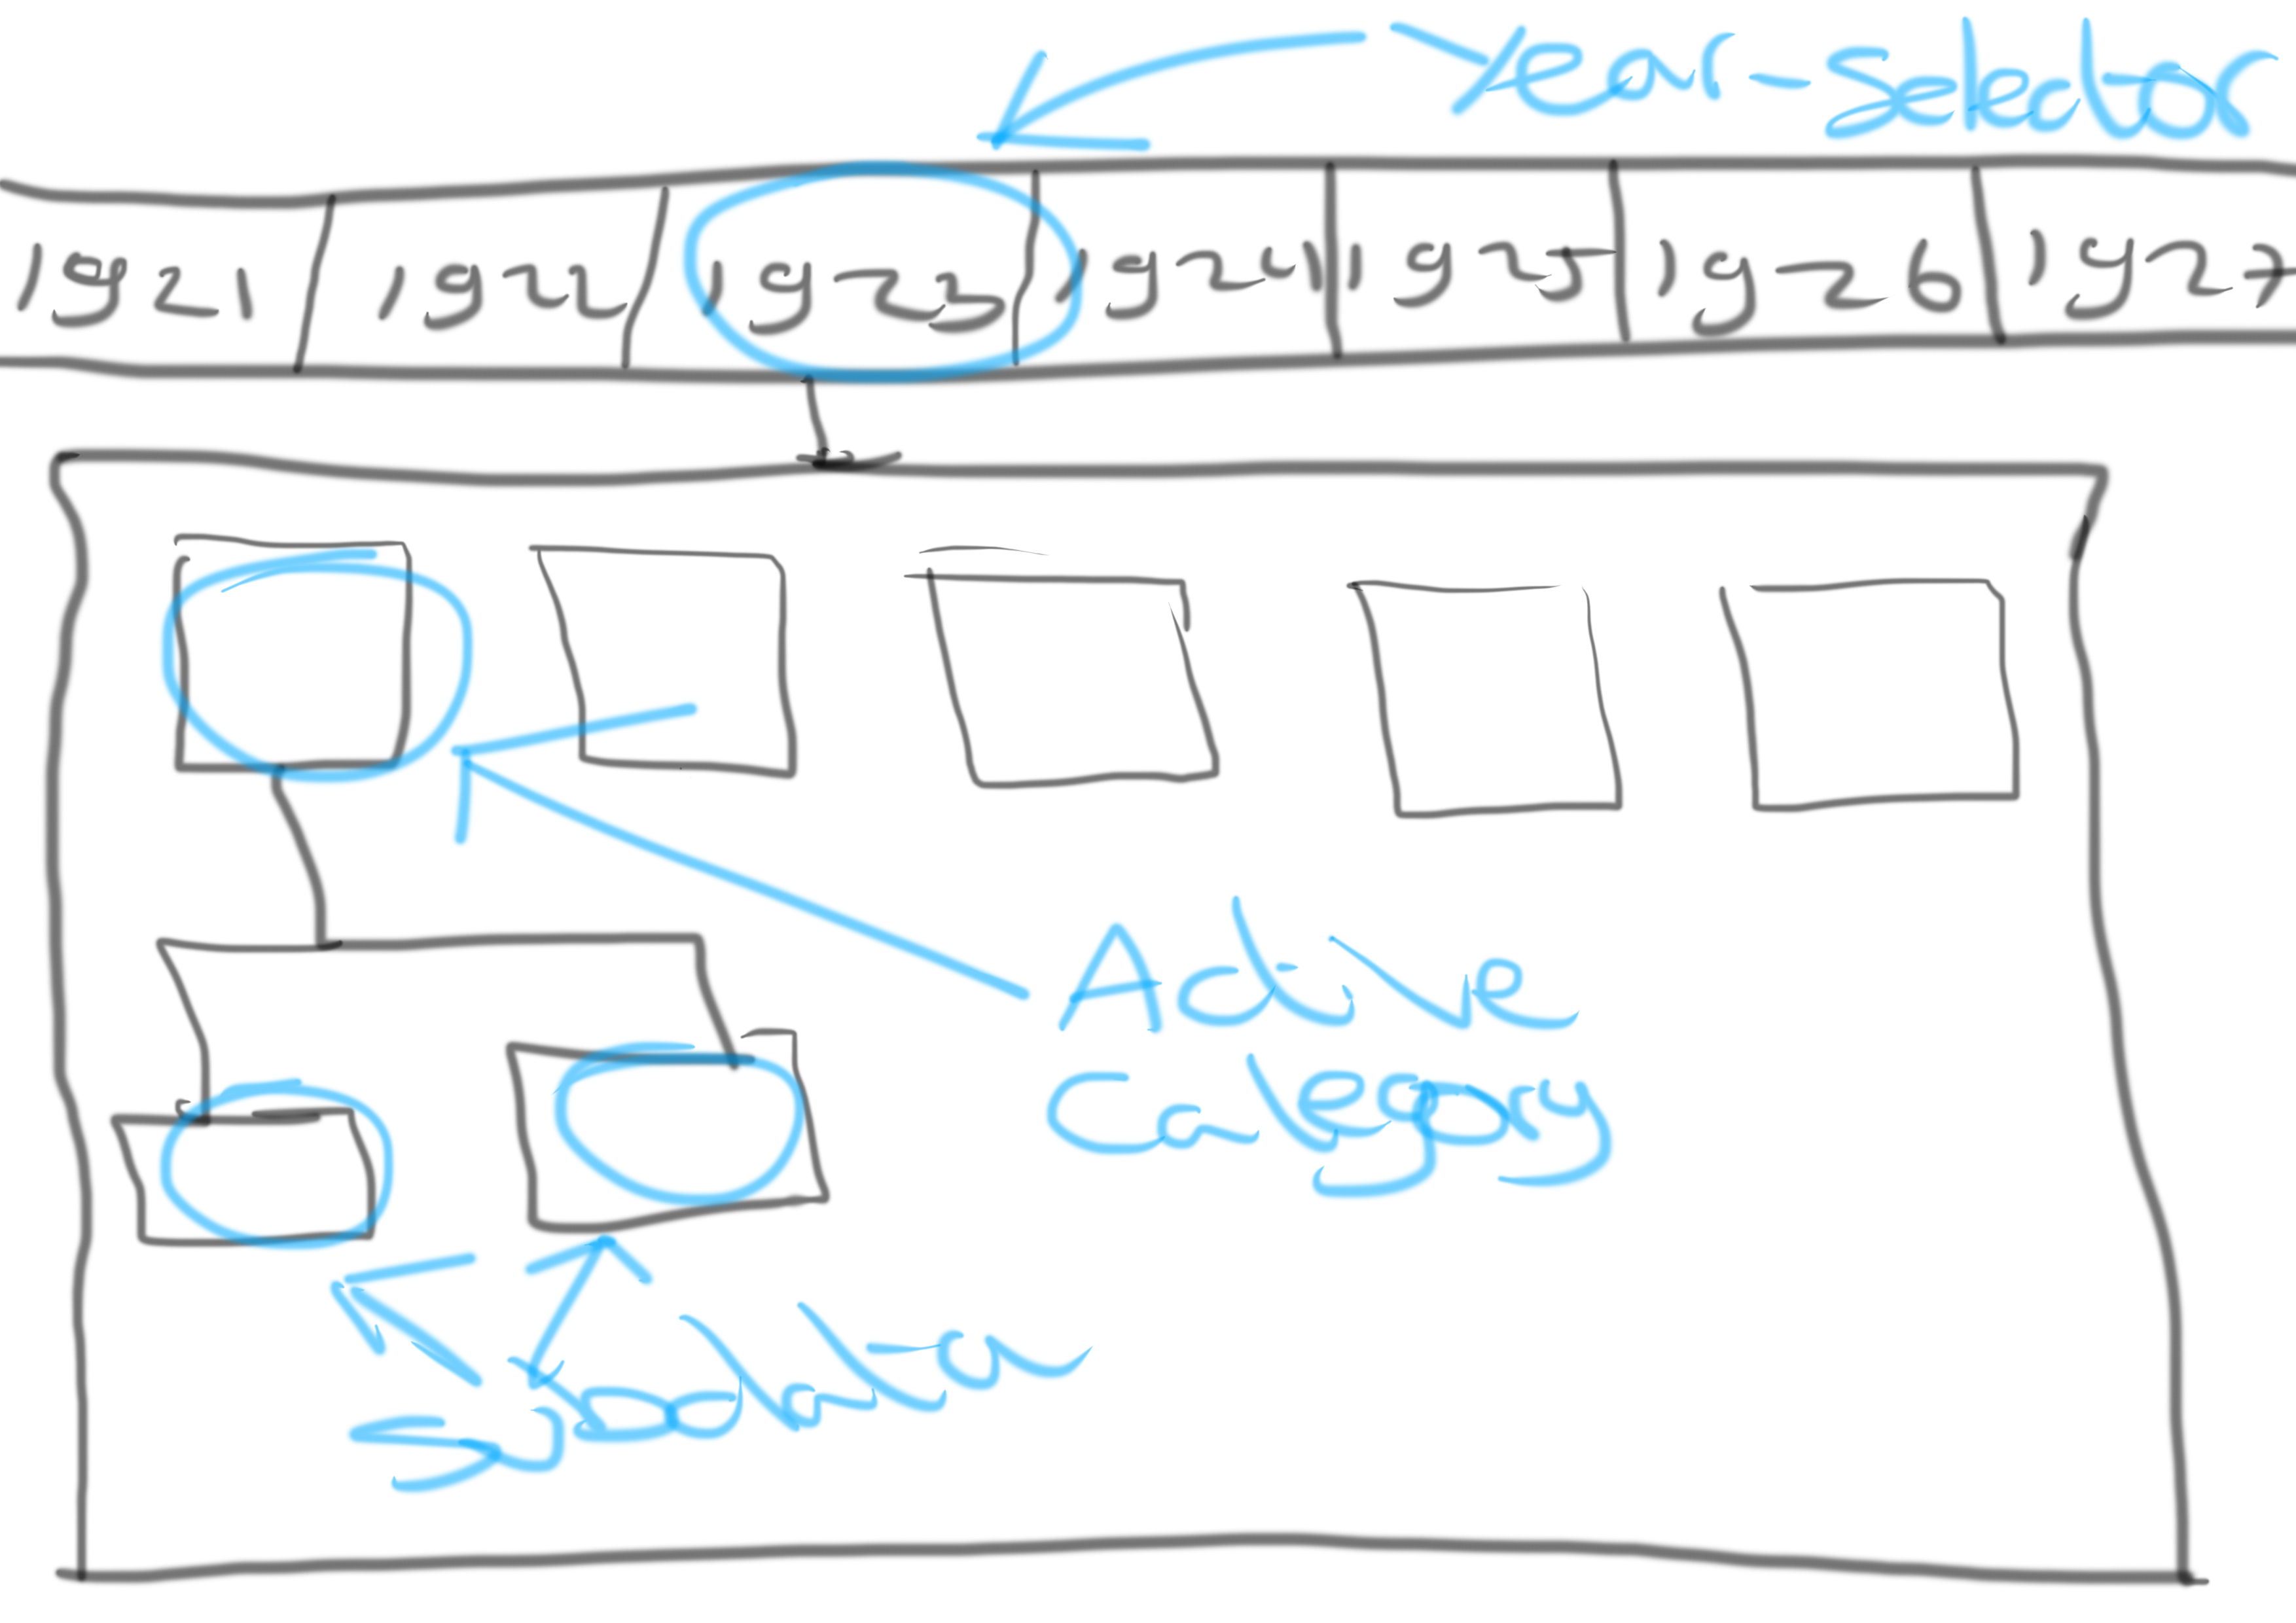 Year-Selector
1921 1922 1923 1924 1925 1926 1927
Active
Category
Subdata